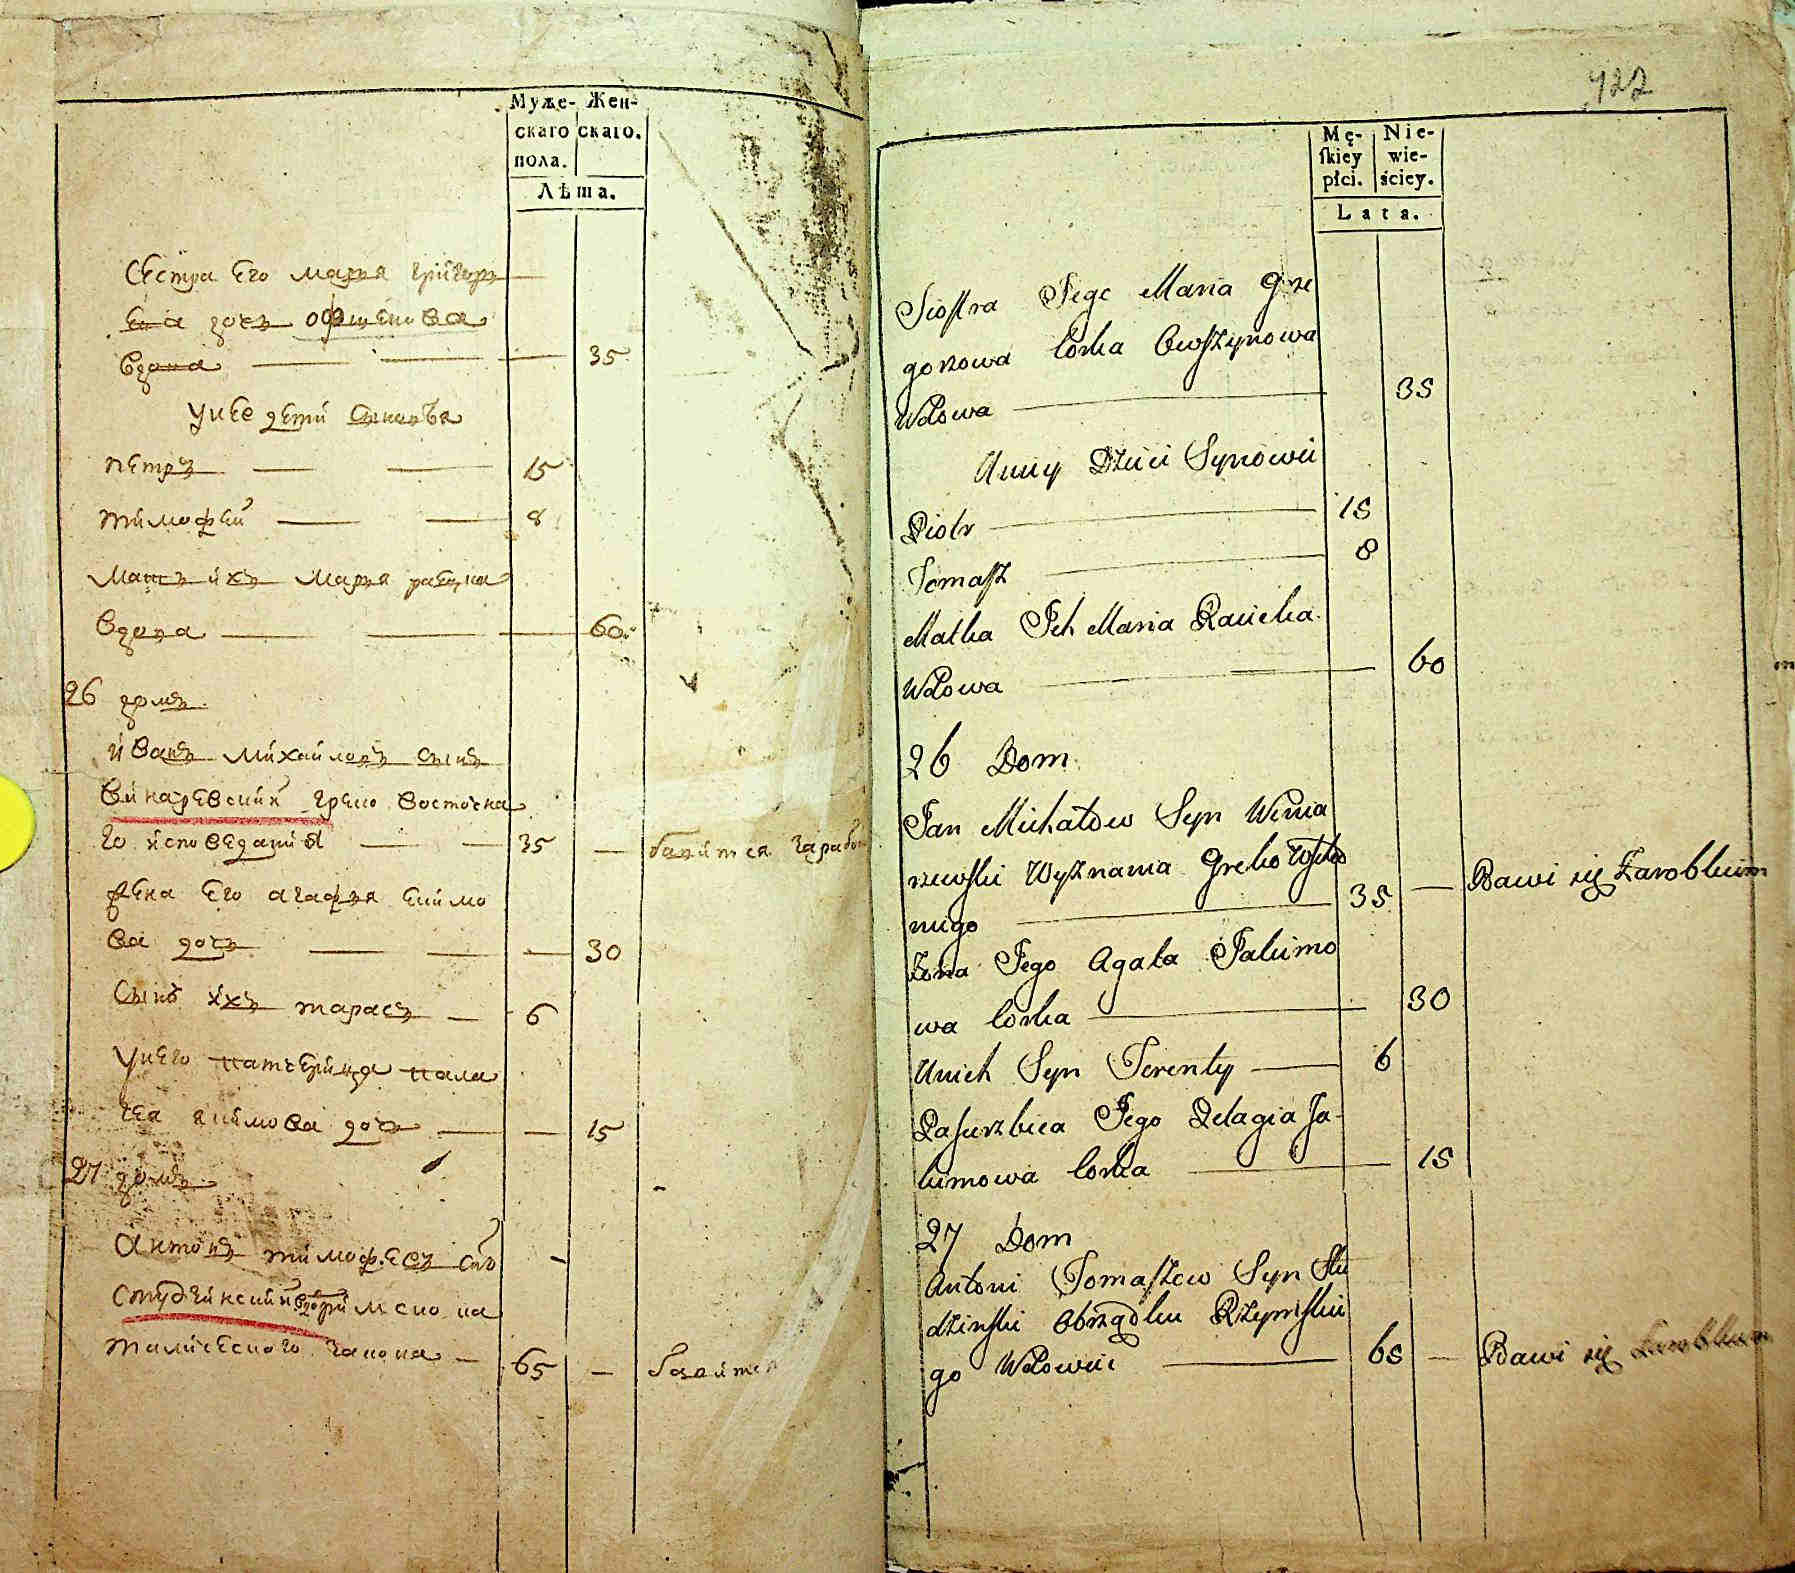 Муже- Жен-
скаго скаго.
пола.
Лѣта.
Сестра Его марья григорь
Ева дочъ
вдова 35
у нее дети сыновья
петръ 15
тимофей 8
мать ихъ марья
вдова 60
26 домъ
иванъ михайловъ сынъ
винаревский греко восточна
го исповедания 35 — бавится зарабо
жена Его агафья Екимо
ва дочъ 30
сынъ ихъ тарасъ 6
у него пала
гея якимова дочъ 15
27 домъ
антонъ тимофеевъ снъ
студзинский римско ка
толического закона 65 — бавится
422
Mę- Nie-
skiey wie-
płci. ściey.
Lata.
Siostra Jego Maria Grze
gorzowa Corka Owszynowa
Wdowa 35
U niey Dzieci Synowie
Piotr 15
Tomasz 8
Matka Ich Maria
Wdowa 60
26 Dom
Jan Michałow Syn Wina
rzewski Wyznania Greko Wscho
niego 35 — Bawi się Zarobkiem
Żona Jego Agata Jakimo
wa Corka 30
U nich Syn Terenty 6
Pasierzbica Jego Pelagia Ja
kimowa Corka 15
27 Dom
Antoni Tomaszew Syn Stu
dzinski Obrządku Rzymskie
go Wdowiec 65 — Bawi się Zarobkiem